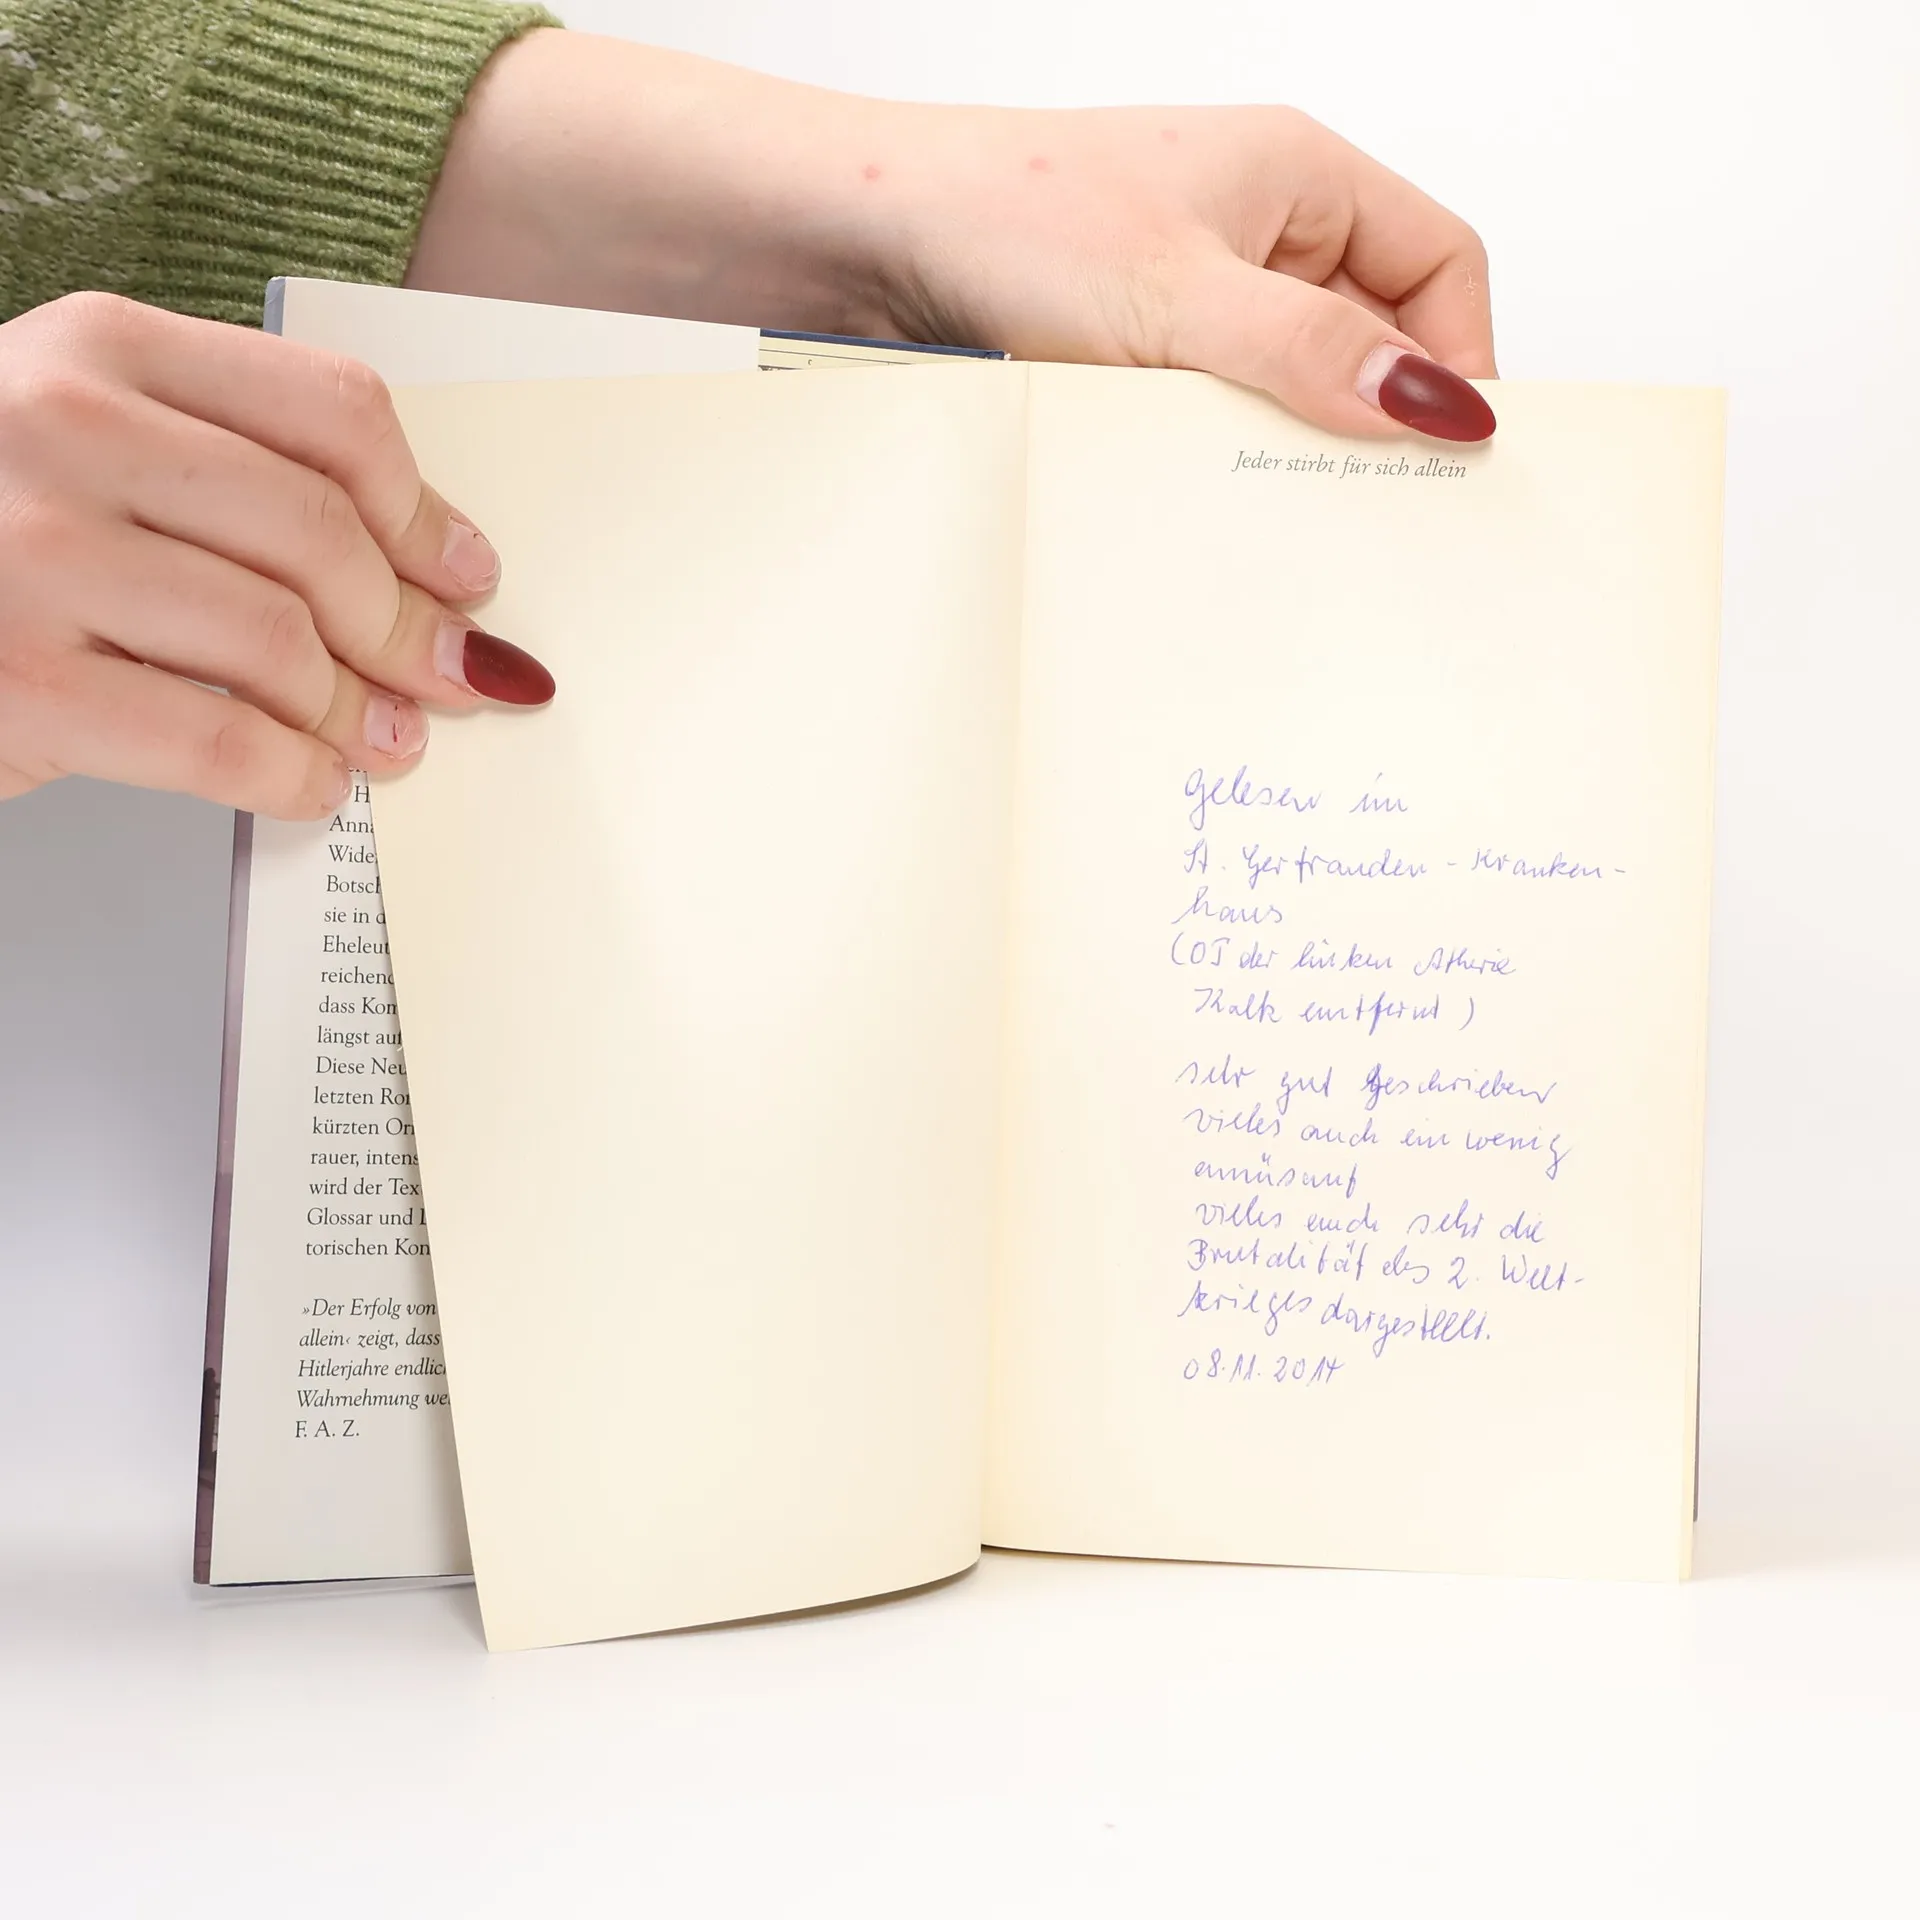 H
Anna
Wide
Botsch
sie in d
Eheleut
reichend
dass Kom
längst auf
Diese Neu
letzten Ro
kürzten Ori
rauer, intens
wird der Tex
Glossar und
torischen Kon
»Der Erfolg von
allein‹ zeigt, dass
Hitlerjahre endlic
Wahrnehmung we
F. A. Z.
Jeder stirbt für sich allein
gelesen im
St. Gertrauden-Kranken-
haus
(OP der linken Atherie
Kalk entfernt)
sehr gut geschrieben
vieles auch ein wenig
amüsant
vieles auch sehr die
Brutalität des 2. Welt-
krieges dargestellt.
08.11.2014